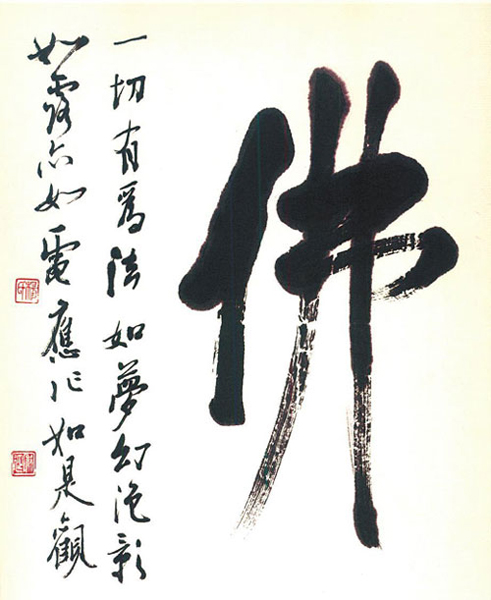 佛
一切有爲法如夢幻泡影
如露亦如電應作如是觀